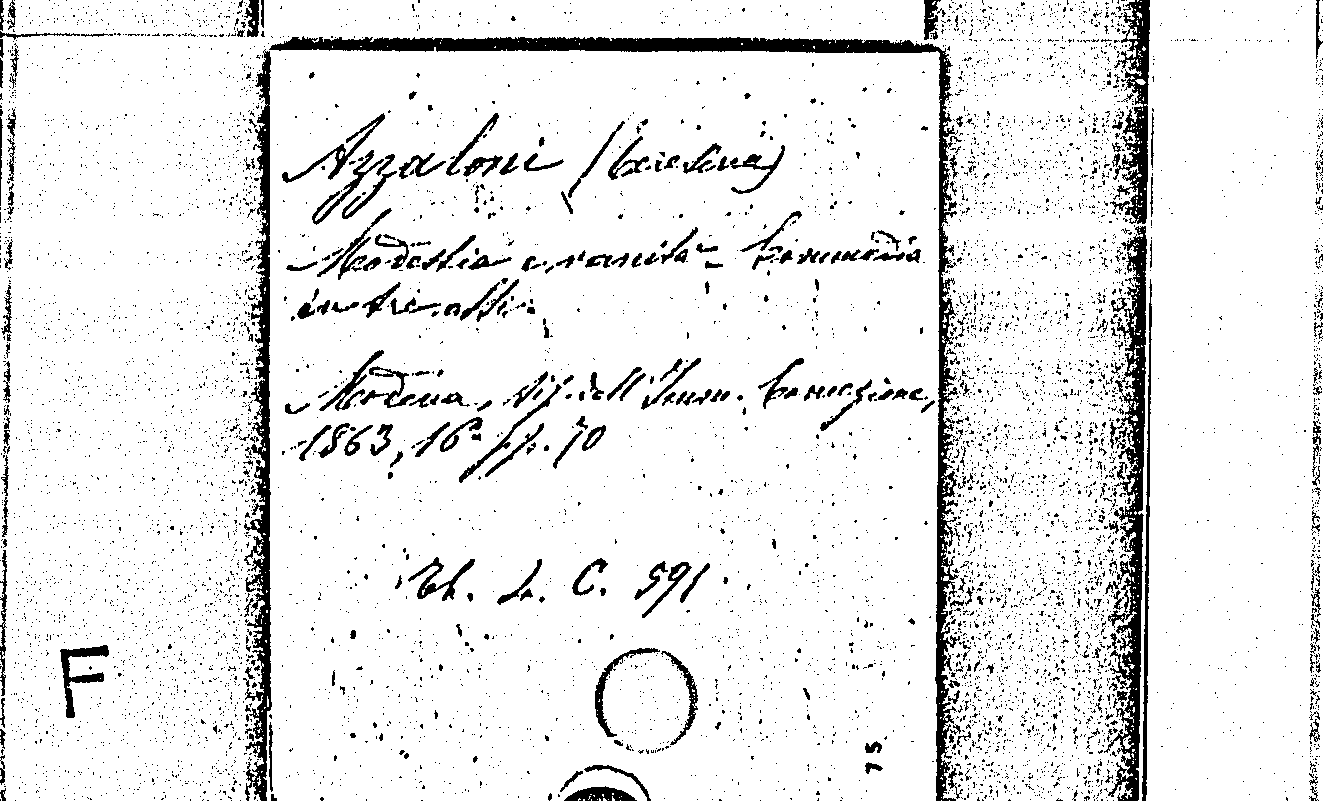 Azzaloni (Teresina)
Modestia e vanità - Commedia
in tre atti.
Modena, Tip. dell'Imm. Concezione,
1863, 16° pp. 70
Th. L. C. 591
F
75